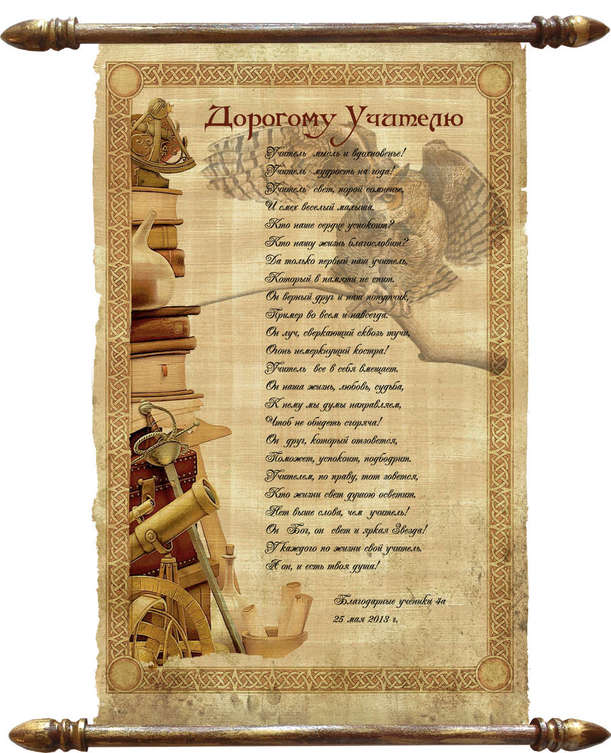 Дорогому Учителю
Учитель мысль и вдохновенье!
Учитель мудрость на года!
Учитель свет, порой сомненье,
И смех веселый малыша.
Кто наше сердце успокоит?
Кто нашу жизнь благословит?
Да только первый наш учитель,
Который в памяти не спит.
Он верный друг и наш попутчик,
Пример во всем и навсегда.
Он луч, сверкающий сквозь тучи,
Огонь немеркнущий костра!
Учитель все в себя вмещает.
Он наша жизнь, любовь, судьба,
К нему мы думы направляем,
Чтоб не обидеть сгоряча!
Он друг, который отзовется,
Поможет, успокоит, подбодрит.
Учителем, по праву, тот зовется,
Кто жизни свет душою осветит.
Нет выше слова, чем учитель!
Он Бог, он свет и яркая Звезда!
У каждого по жизни свой учитель.
А он, и есть твоя душа!
Благодарные ученики 4а
25 мая 2013 г.